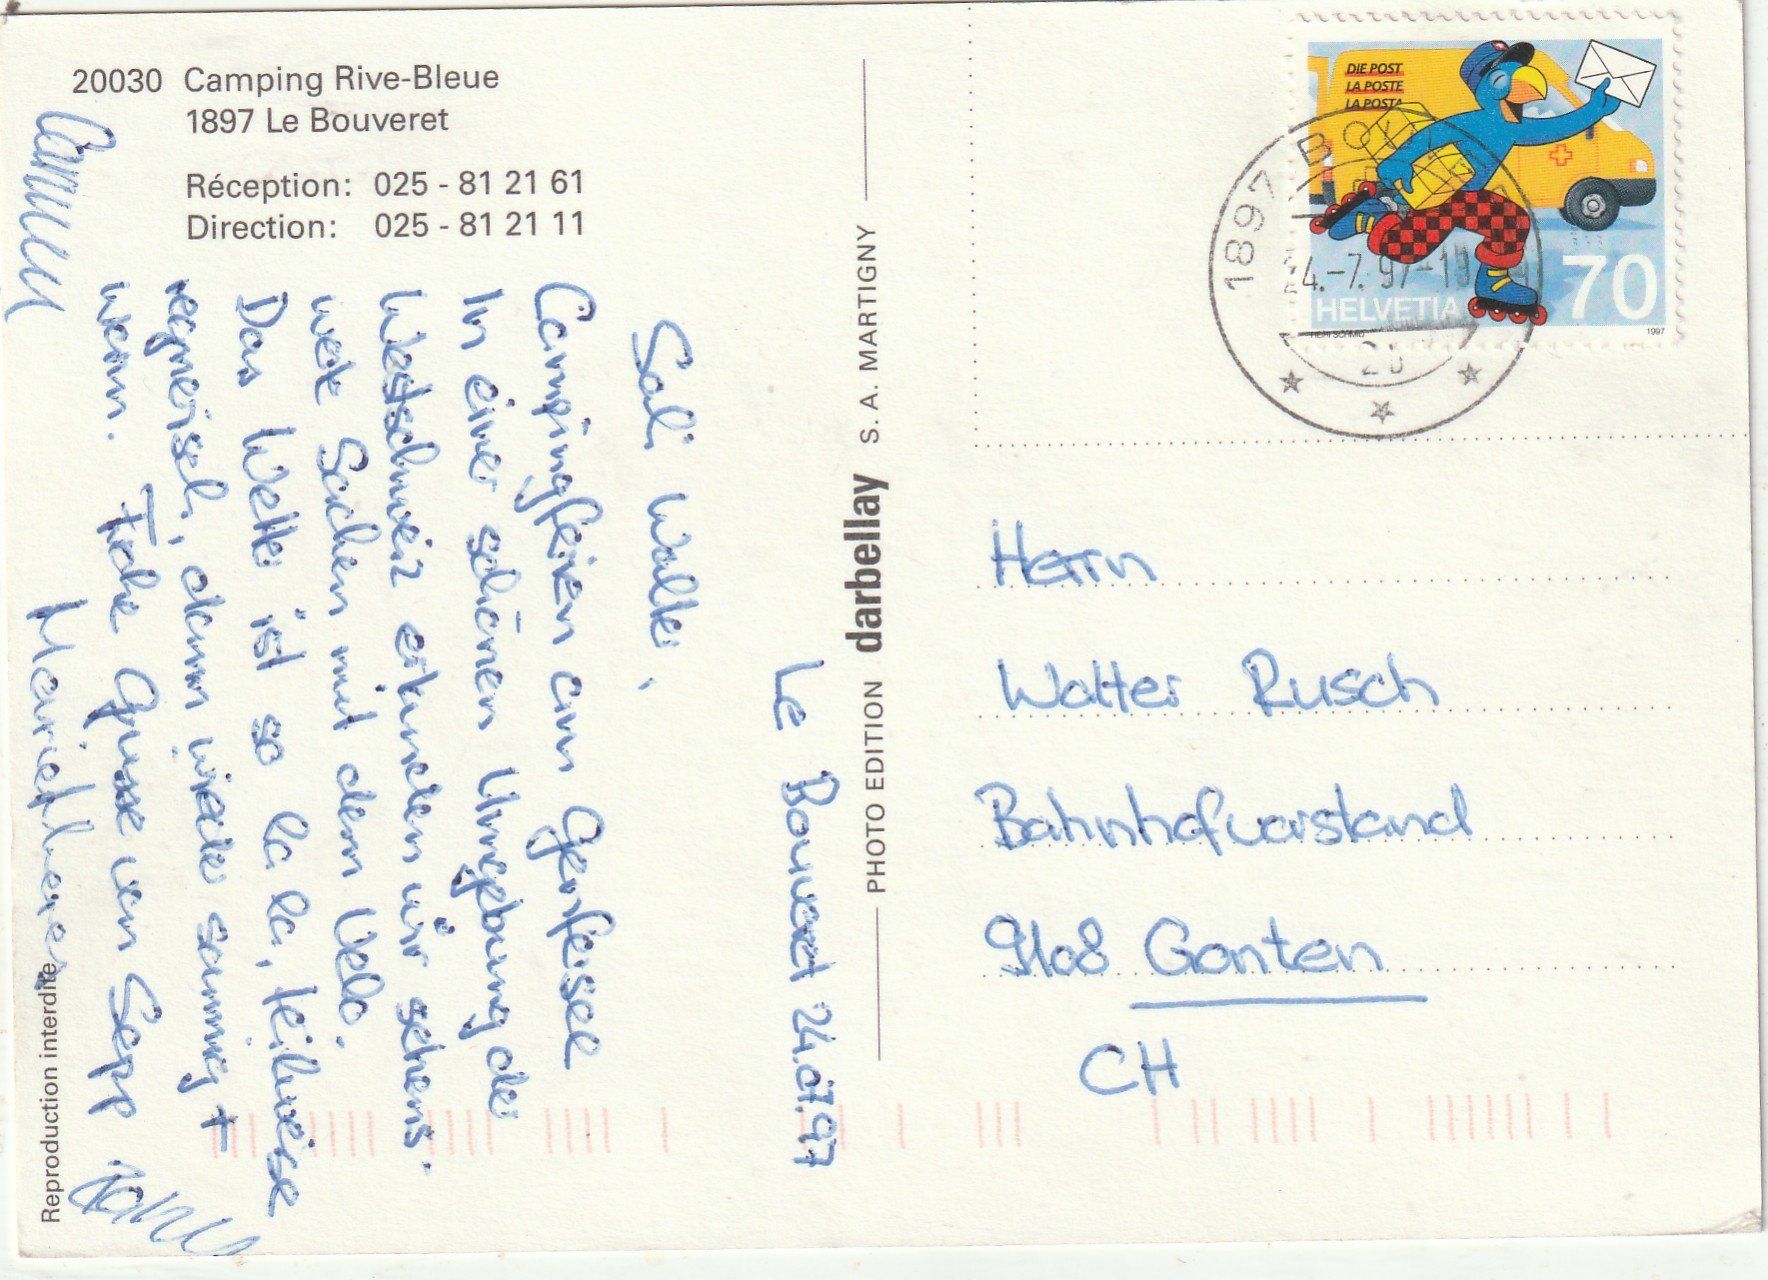 20030 Camping Rive-Bleue
1897 Le Bouveret
Réception: 025 - 81 21 61
Direction: 025 - 81 21 11
Le Bouveret 24.07.97
Sali Walter,
Campingferien am Genfersee
In einer schönen Umgebung der
Westschweiz erkunden wir sehens-
werte Sachen mit dem Velo.
Das Wetter ist so la la, teilweise
regnerisch, dann wieder sonnig +
warm. Frohe Grüsse von Sepp
Reproduction interdite
PHOTO EDITION darbellay S. A. MARTIGNY
DIE POST
LA POSTE
LA POSTA
HELVETIA 70
HEIRI SCHMID 1997
1897 BO
24.-7.97-18
Herrn
Walter Rusch
Bahnhofvorstand
9108 Gonten
CH